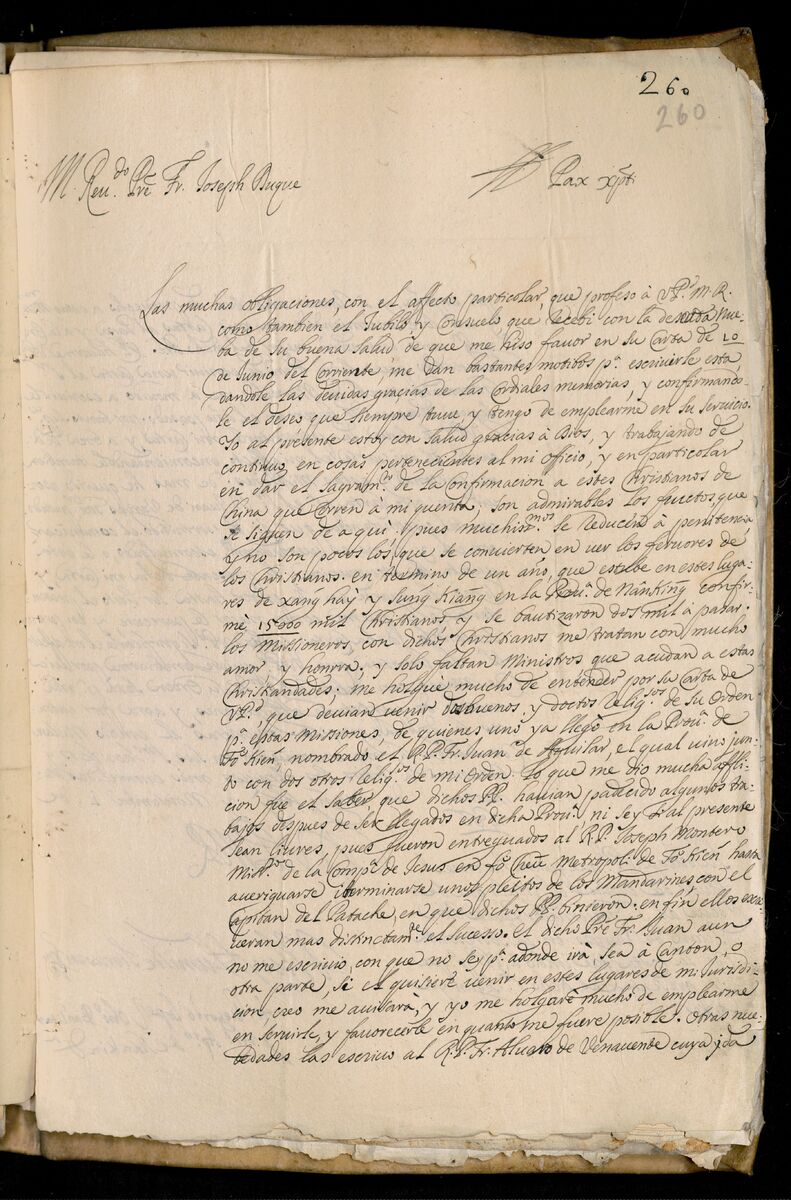 260
260
M Reu.do Pe Fr. Joseph Duque
Pax xpti
Las muchas obligaciones, con el affecto particular, que profeso à VP. M.R.
como tambien el Jubilo, y Consuelo que recebi con la desseada nue-
ba de su buena salud de que me hiso favor en su Carta de 20
de Junio del Corriente, me dan bastantes motibos pa. escriuirle esta,
dandole las deuidas gracias de las Cordiales memorias, y confirmando-
le el deseo que siempre tuue, y tengo de emplearme en su seruicio.
Yo al presente estoy con salud gracias à Dios, y trabajando de
continuo en cosas pertenecientes al mi officio, y en particular
en dar el sagram.to de la Confirmacion a estes Christianos de
China que corren à mi quenta; son admirables los fructos, que
se siguen de aqui pues muchiss.mos se reducen à penitencia
y no son pocos los que se conuierten en uer los feruores de
los Christianos. en termino de un año, que estube en estes luga-
res de xang hay y Sung Kiang en la Prou.a de Nanking confir-
mè 15000 mil Christianos y se bautizaron dos mil à pasar.
los Missioneros, con dichos Christianos me tratan con mucho
amor, y honrra, y solo faltan Ministros que acudan a estas
Christiandades; me holguè mucho de entender por su Carta de
VP., que deuian uenir buenos y doctos relig.sos de su Orden
pa. estas Missiones, de quienes uno ya llegò en la Prou.a de
Fo Kien, nombrado el R.P. Fr. Juan de Aguilar, el qual uino jun-
to con dos otros relig.os de mi Orden. lo que me dio mucha affli-
cion fue el saber, que dichos PP. hauian padecido algunos tra-
bajos despues de ser llegados en dicha Prou.a, ni sey si al presente
sean liures, pues fueron entreguados al R.P. Joseph Montero
Miss.o de la Comp.a de Jesus en fo Cheu Metropoli de Fo Kien hasta
aueriguarse i terminarse unos pleitos de los Mandarines con el
Capitan del Patache, en que dichos PP. binieron. en fin ellos escri-
ueran mas distinctam.te el sucesso. el dicho Pre Fr. Juan aun
no me escriuio, con que no sey pa. adonde irà, sea à Canton, o
otra parte, si el quisiere uenir en estes lugares de mi Jurisdi-
cion creo me auisarà, y yo me holgarè mucho de emplearme
en seruirle, y fauorecerle en quanto me fuere posible. Otras nue-
bedades las escriuo al R.P. Fr. Aluaro de Venauente cuya yda